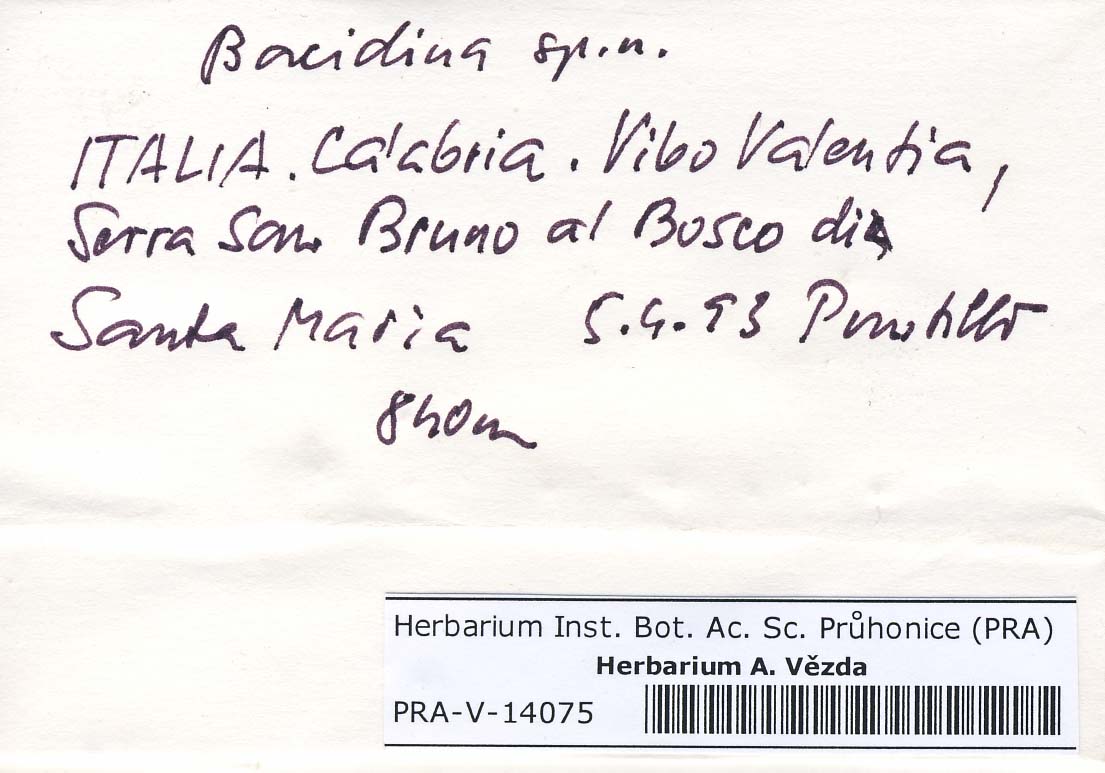 Bacidina sp.n.
ITALIA. Calabria. Vibo Valentia,
Serra San Bruno al Bosco di
Santa Maria 5.4.93 Puntillo
840m
Herbarium Inst. Bot. Ac. Sc. Průhonice (PRA)
Herbarium A. Vězda
PRA-V-14075